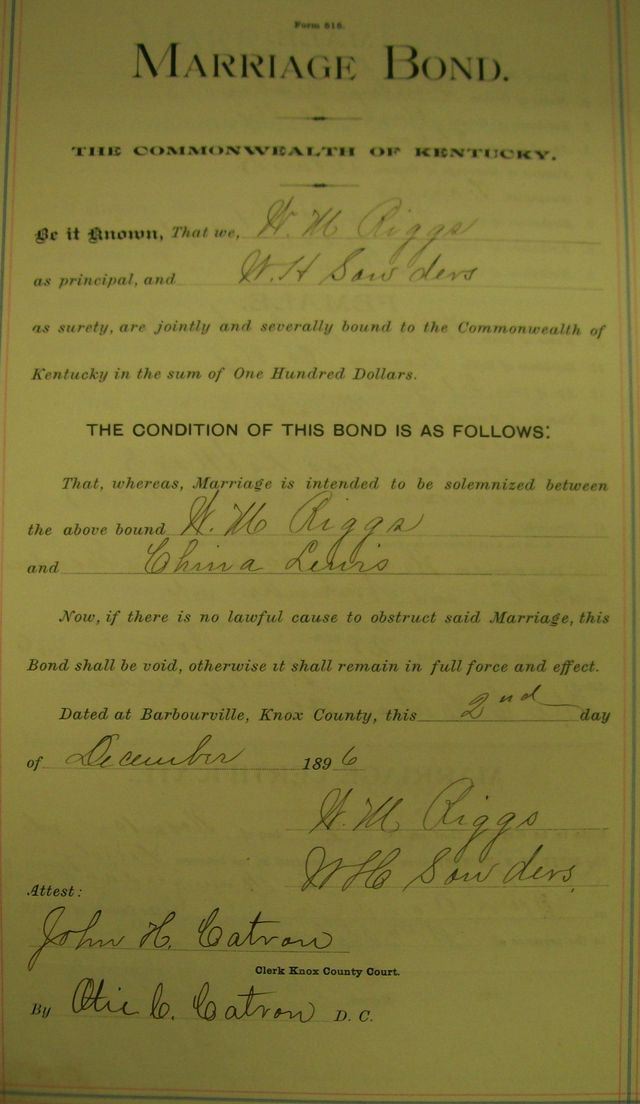 Form 516.
MARRIAGE BOND.
THE COMMONWEALTH OF KENTUCKY.
Be it Known, That we, W. M Riggs
as principal, and W. H Sowders
as surety, are jointly and severally bound to the Commonwealth of
Kentucky in the sum of One Hundred Dollars.
THE CONDITION OF THIS BOND IS AS FOLLOWS:
That, whereas, Marriage is intended to be solemnized between
the above bound W. M Riggs
and China Lewis
Now, if there is no lawful cause to obstruct said Marriage, this
Bond shall be void, otherwise it shall remain in full force and effect.
Dated at Barbourville, Knox County, this 2nd day
of December 1896
W. M Riggs
W H Sowders.
Attest:
John H. Catron
Clerk Knox County Court.
By Otis C. Catron D. C.